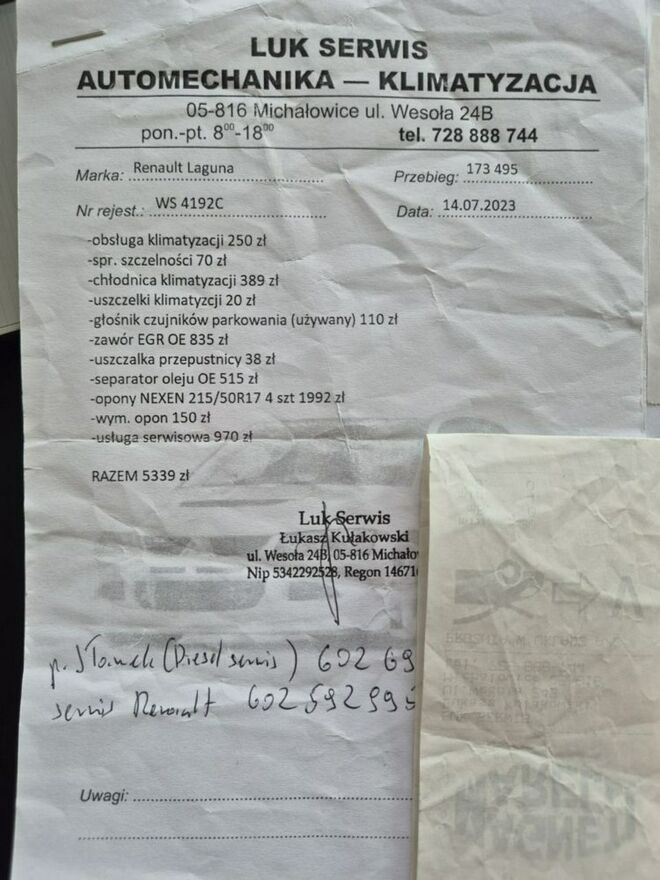 LUK SERWIS
AUTOMECHANIKA — KLIMATYZACJA
05-816 Michałowice ul. Wesoła 24B
pon.-pt. 8⁰⁰-18⁰⁰ tel. 728 888 744
Marka: Renault Laguna Przebieg: 173 495
Nr rejest.: WS 4192C Data: 14.07.2023
-obsługa klimatyzacji 250 zł
-spr. szczelności 70 zł
-chłodnica klimatyzacji 389 zł
-uszczelki klimatyzcji 20 zł
-głośnik czujników parkowania (używany) 110 zł
-zawór EGR OE 835 zł
-uszczalka przepustnicy 38 zł
-separator oleju OE 515 zł
-opony NEXEN 215/50R17 4 szt 1992 zł
-wym. opon 150 zł
-usługa serwisowa 970 zł
RAZEM 5339 zł
Luk Serwis
Łukasz Kułakowski
ul. Wesoła 24B, 05-816 Michało
Nip 5342292528, Regon 14671
p. Sławek (Diesel serwis) 602 69
serwis Renault 602 592 995
Uwagi: